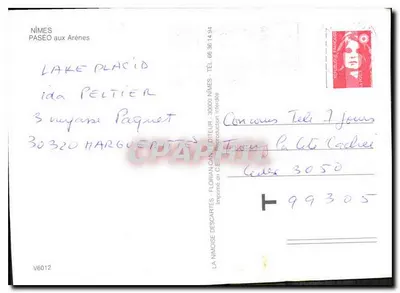 NÎMES
PASEO aux Arènes
LAKE PLACID
ida PELTIER
3 impasse Paquet
30320 MARGUERITTES
V6012
LA NIMOISE DESCARTES - FLORIAN CAN EDITEUR - 30000 NIMES - TÉL. 66 36 14 94
Imprimé en C.E.E. - Reproduction interdite
CPARAMA
Concours Télé 7 Jours
Cedex 3050
T 99305